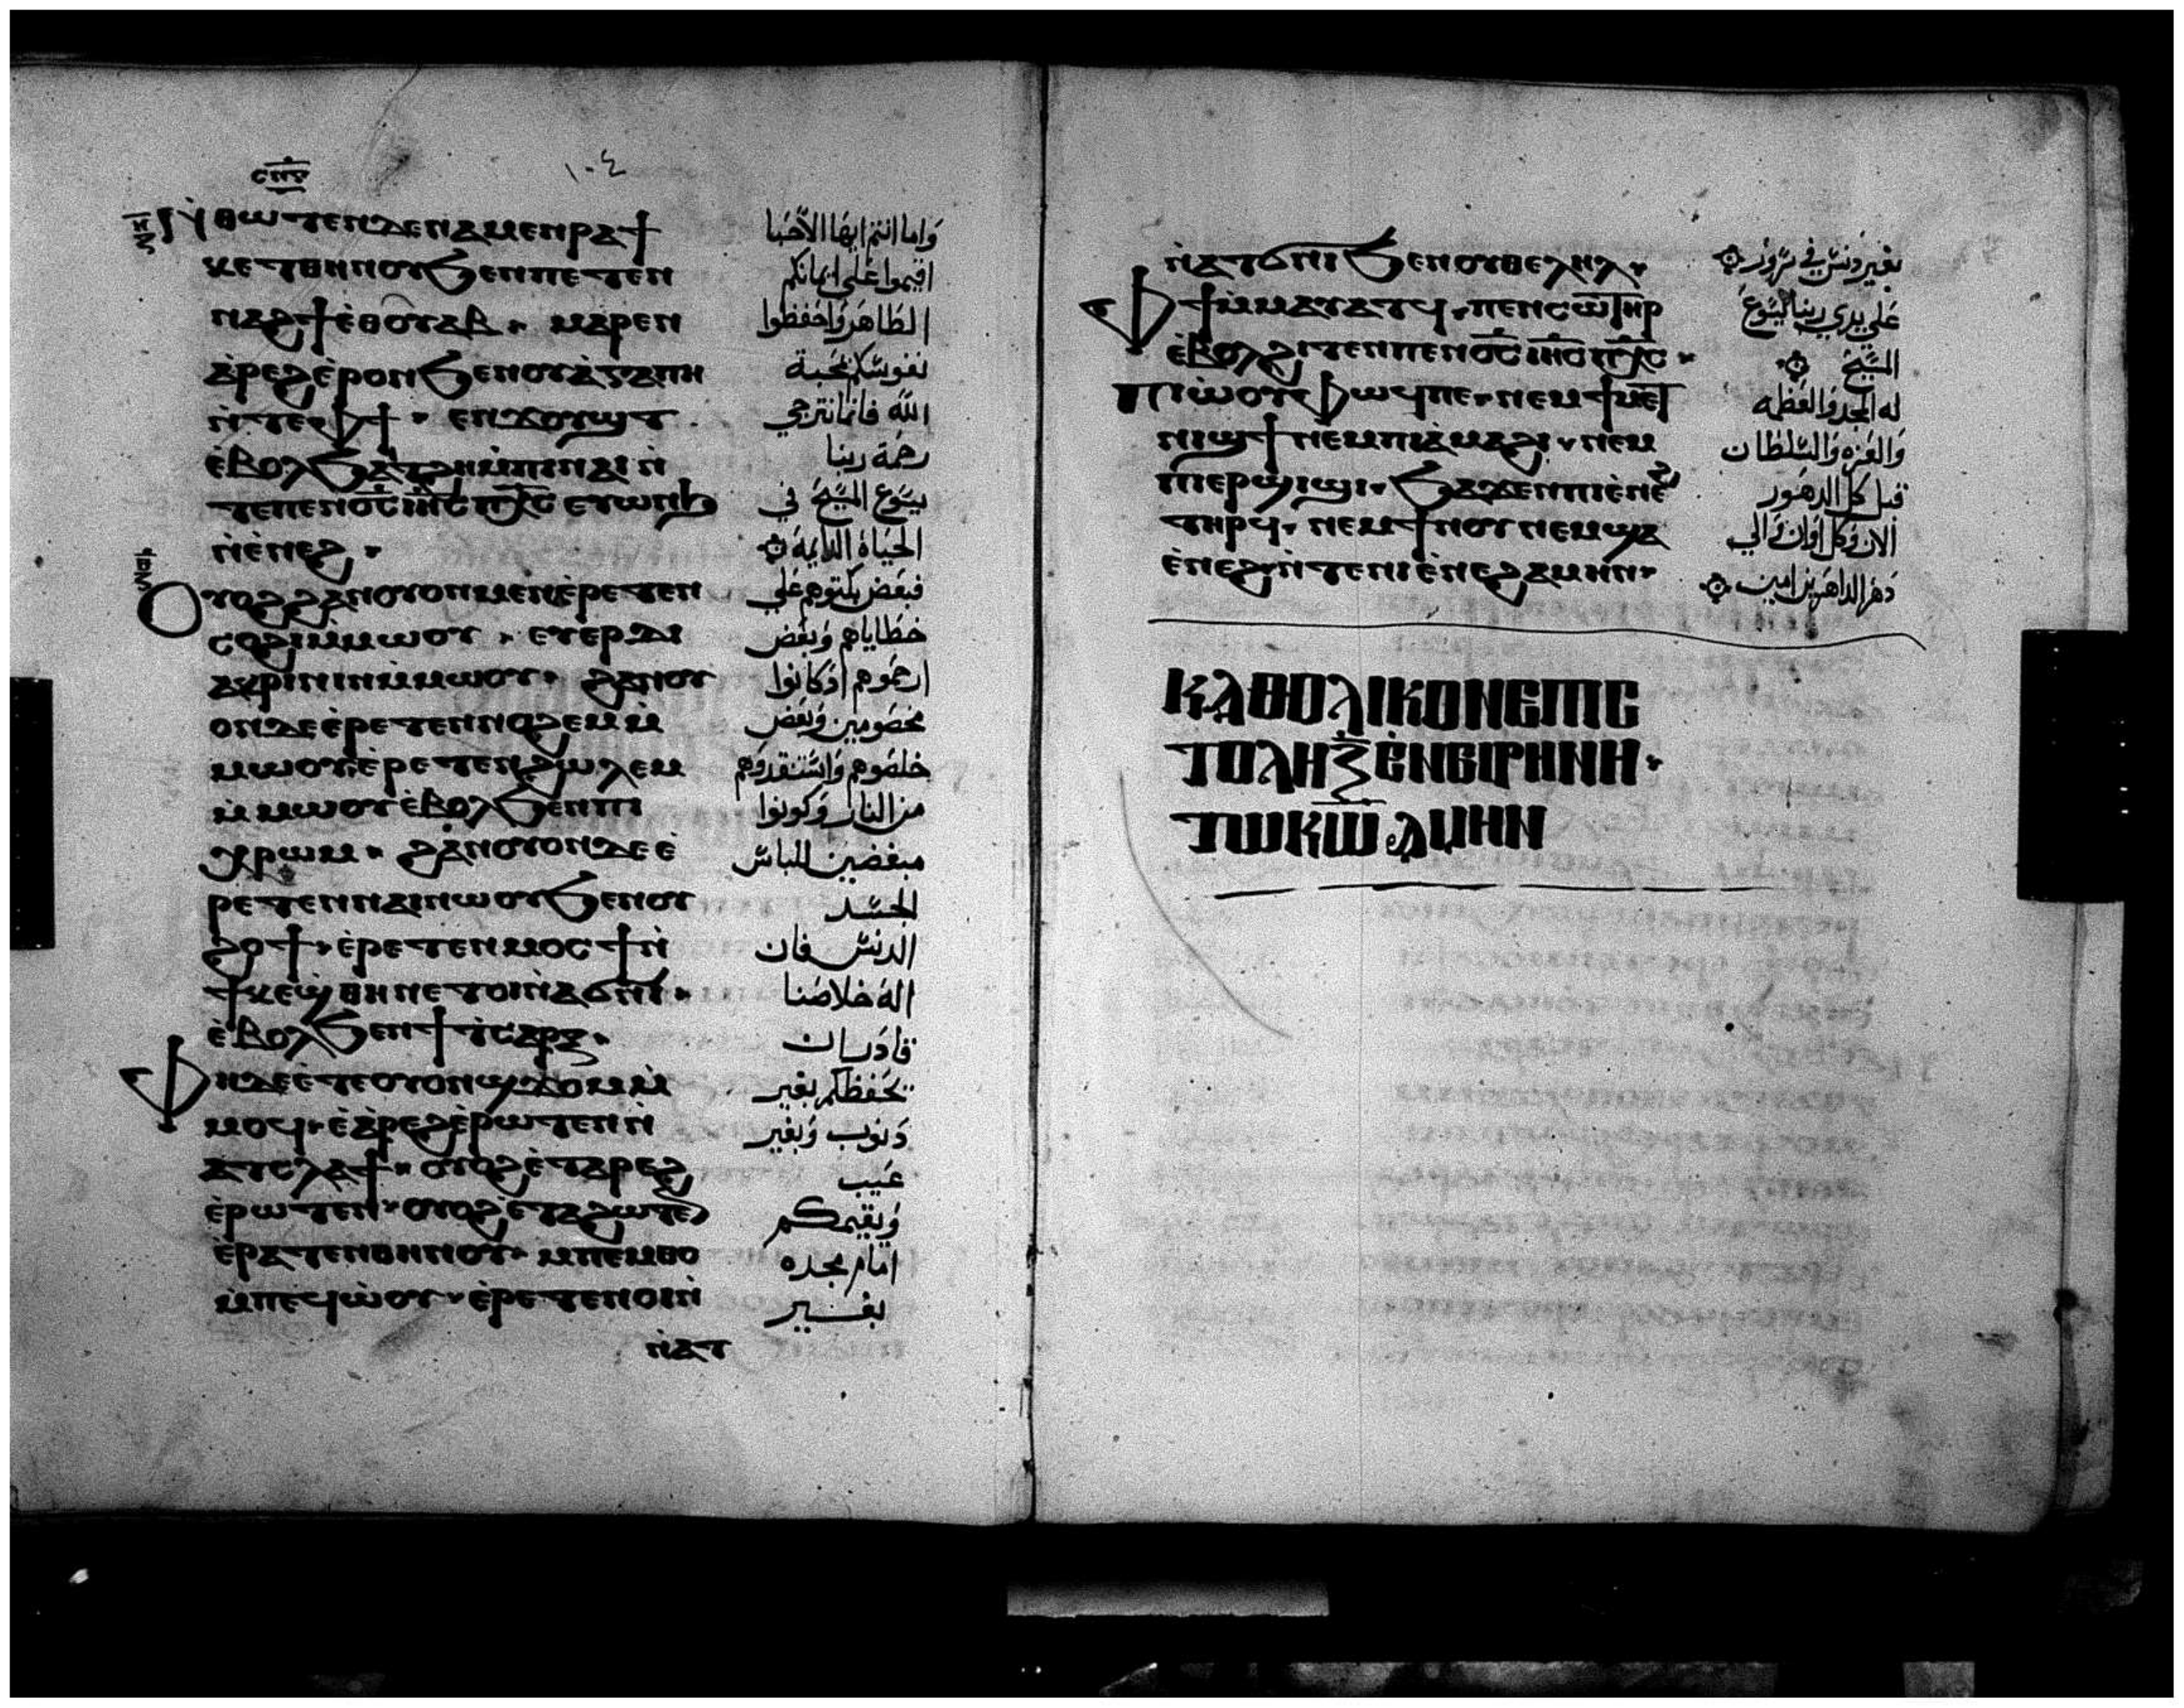 ⲥⲡⲋ
١٠٤
ⲛ̇ⲑⲱⲧⲉⲛ ⲇⲉ ⲛⲁⲙⲉⲛⲣⲁϯ
ⲕⲉⲧ ⲑⲏⲛⲟⲩ ϧⲉⲛ ⲡⲉⲧⲉⲛ
ⲛⲁϩϯ ⲉ̇ⲑⲟⲩⲁⲃ ⲙⲁⲣⲉⲛ
ⲁ̇ⲣⲉϩ ⲉ̇ⲣⲟⲛ ϧⲉⲛ ⲟⲩⲁ̇ⲅⲁⲡⲏ
ⲛ̇ⲧⲉ ⲫϯ ⲉⲛϫⲟⲩϣⲧ
ⲉ̇ⲃⲟⲗ ϧⲁⲧϩⲏ ⲙ̇ⲡⲓⲛⲁⲓ ⲛ̇
ⲧⲉ ⲡⲉⲛⲟ̅ⲥ̅ ⲓⲏ̅ⲥ̅ ⲡ̅ⲭ̅ⲥ̅ ⲉⲩⲱⲛϧ
ⲛ̇ⲉ̇ⲛⲉϩ
ⲟⲩⲟϩ ϩⲁⲛⲟⲩⲟⲛ ⲙⲉⲛ ⲉ̇ⲣⲉⲧⲉⲛ
ⲥⲟϩⲓ ⲙ̇ⲙⲱⲟⲩ ⲉⲩⲉⲣⲇⲓ
ⲁⲕⲣⲓⲛⲓⲛ ⲙ̇ⲙⲱⲟⲩ ϩⲁⲛⲟⲩ
ⲟⲛ ⲇⲉ ⲉ̇ⲣⲉⲧⲉⲛⲛⲟϩⲉⲙ ⲙ̇
ⲙⲱⲟⲩ ⲉ̇ⲣⲉⲧⲉⲛϩⲱⲗⲉⲙ
ⲙ̇ⲙⲱⲟⲩ ⲉ̇ⲃⲟⲗ ϧⲉⲛ ⲡⲓ
ⲭⲣⲱⲙ ϩⲁⲛⲟⲩⲟⲛ ⲇⲉ ⲉ̇
ⲣⲉⲧⲉⲛⲛⲁⲓ ⲛⲱⲟⲩ ϧⲉⲛ ⲟⲩ
ϩⲟϯ ⲉ̇ⲣⲉⲧⲉⲛⲙⲟⲥϯ ⲛ̇
ϯⲕⲉϣⲑⲏⲛ ⲉⲧⲟⲓ ⲛ̇ⲁϭⲛⲓ
ⲉ̇ⲃⲟⲗ ϧⲉⲛ ϯⲥⲁⲣⲝ
ⲫⲏ ⲇⲉ ⲉ̇ⲧⲉ ⲟⲩⲟⲛ ϣϫⲟⲙ ⲙ̇
ⲙⲟϥ ⲉ̇ⲁ̇ⲣⲉϩ ⲉ̇ⲣⲱⲧⲉⲛ ⲛ̇
ⲁⲧⲥⲗⲁϯ ⲟⲩⲟϩ ⲉ̇ⲧⲁⲣⲉϩ
ⲉ̇ⲣⲱⲧⲉⲛ ⲟⲩⲟϩ ⲉ̇ⲧⲁϩⲱⲧⲉⲛ
ⲉ̇ⲣⲁⲧⲉⲛ ⲑⲏⲛⲟⲩ ⲙⲡⲉⲙⲑⲟ
ⲙ̇ⲡⲉϥⲱ̇ⲟⲩ ⲉ̇ⲣⲉⲧⲉⲛⲟⲓ ⲛ̇
ⲛ̇ⲁⲧ
واما انتم ايها الاحبا
اقيموا على ايمانكم
الطاهر واحفظوا
نفوسكم بمحبة
الله فاننا نترجي
رحمة ربنا
يسوع المسيح في
الحياة الدايمة
فبعض بكتوهم على
خطاياهم وبعض
ارحموهم اذ كانوا
مخصومين وبعض
خلصوهم واستنقدوهم
من النار وكونوا
مبغضين للباس
الجسد
الدنس فان
اله خلاصنا
قادر ان
يحفظكم بغير
دنوب وبغير
عيب
ويقيمكم
امام مجده
بغير
ⲛ̇ⲁⲧϭⲛⲓ ϧⲉⲛ ⲟⲩⲑⲉⲗⲏⲗ
ⲫϯ ⲙ̇ⲙⲁⲩⲁⲧϥ ⲡⲉⲛⲥⲱ̅ⲧⲏⲣ
ⲉ̇ⲃⲟⲗ ϩⲓⲧⲉⲛ ⲡⲉⲛⲟ̅ⲥ̅ ⲓⲏ̅ⲥ̅ ⲡ̅ⲭ̅ⲥ̅
ⲡⲓⲱ̇ⲟⲩ ⲫⲱϥ ⲡⲉ ⲛⲉⲙ ϯⲙⲉⲧ
ⲛⲓϣϯ ⲛⲉⲙ ⲡⲓⲁ̇ⲙⲁϩⲓ ⲛⲉⲙ
ⲡⲓⲉⲣϣⲓϣⲓ ϧⲁϫⲉⲛ ⲡⲓⲉ̇ⲛⲉϩ
ⲧⲏⲣϥ ⲛⲉⲙ ϯⲛⲟⲩ ⲛⲉⲙ ϣⲁ
ⲉ̇ⲛⲉϩ ⲛ̇ⲧⲉ ⲛⲓⲉ̇ⲛⲉϩ ⲁⲙⲏⲛ
بغير دنس في سرور
على يدي ربنا يسوع
المسيح
له المجد والعظمه
والعزه والسلطان
قبل كل الدهور
الان وكل اوان والي
دهر الداهرين امين
ⲕⲁⲑⲟⲗⲓⲕⲟⲛ ⲉⲡⲓⲥ
ⲧⲟⲗⲏ ⲝ̅ ⲉ̇ⲛ ⲉⲓⲣⲏⲛⲏ
ⲧⲱ ⲕ̅ⲱ̅ ⲁⲙⲏⲛ